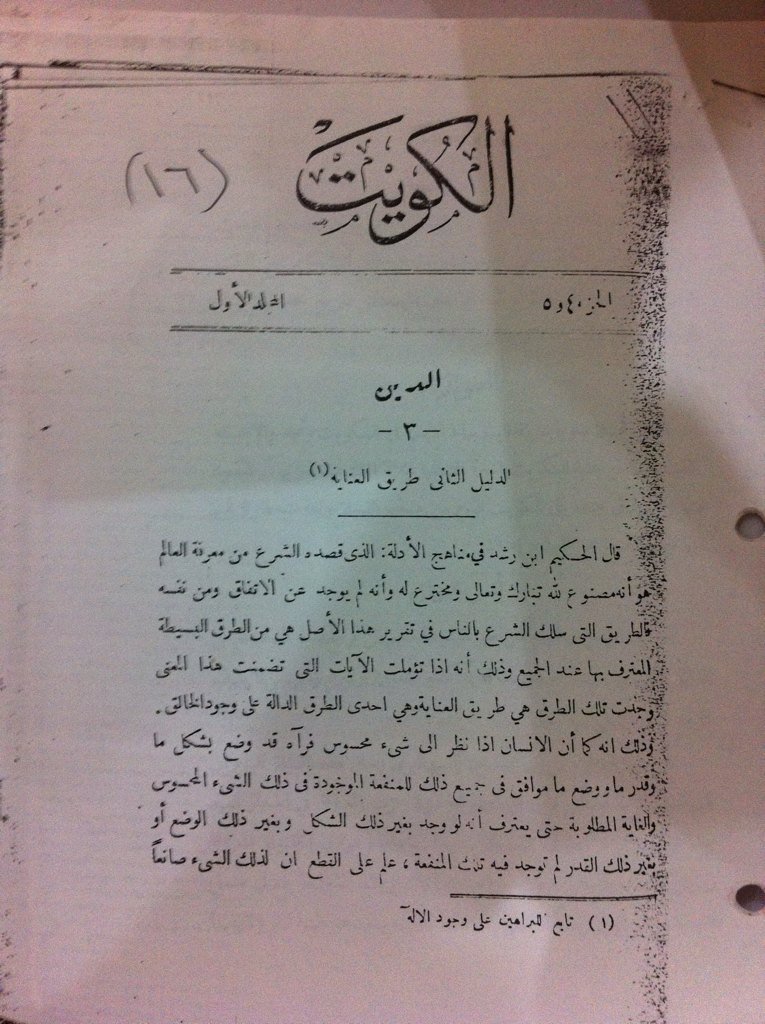 الكويت
(١٦)
الجزء ٤ و ٥
المجلد الأول
الدين
— ٣ —
الدليل الثانى طريق العناية (١)
قال الحكيم ابن رشد في مناهج الأدلة: الذى قصده الشرع من معرفة العالم
هو أنه مصنوع لله تبارك وتعالى ومخترع له وأنه لم يوجد عن الاتفاق ومن نفسه
فالطريق التى سلك الشرع بالناس في تقرير هذا الأصل هي من الطرق البسيطة
المعترف بها عند الجميع وذلك أنه اذا تؤملت الآيات التى تضمنت هذا المعنى
وجدت تلك الطرق هي طريق العناية وهي احدى الطرق الدالة على وجود الخالق .
وذلك انه كما أن الانسان اذا نظر الى شىء محسوس فرآه قد وضع بشكل ما
وقدر ما ووضع ما موافق فى جميع ذلك للمنفعة الموجودة فى ذلك الشىء المحسوس
والغاية المطلوبة حتى يعترف أنه لو وجد بغير ذلك الشكل وبغير ذلك الوضع أو
بغير ذلك القدر لم توجد فيه تلك المنفعة ، علم على القطع ان لذلك الشىء صانعاً
(١) تابع للبراهين على وجود الاله